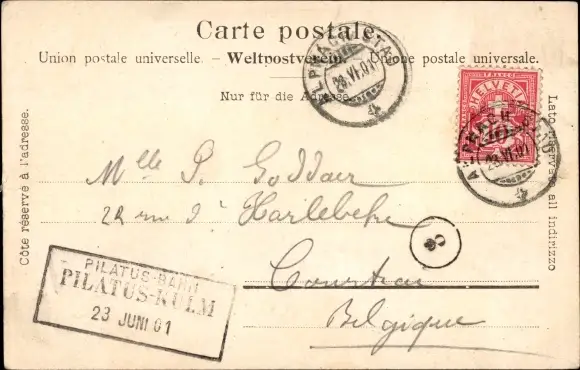 Carte postale.
Union postale universelle. – Weltpostverein. – Unione postale universale.
Nur für die Adresse.
Côte réservé à l'adresse.
Lato riservato all indirizzo
HELVETIA
FRANCO
10
ALPNACH-STAD
23.VI.01
Mlle P. Goddaer
22 rue d'Harlebeke
Courtrai
Belgique
PILATUS-BAHN
PILATUS-KULM
23 JUNI 01